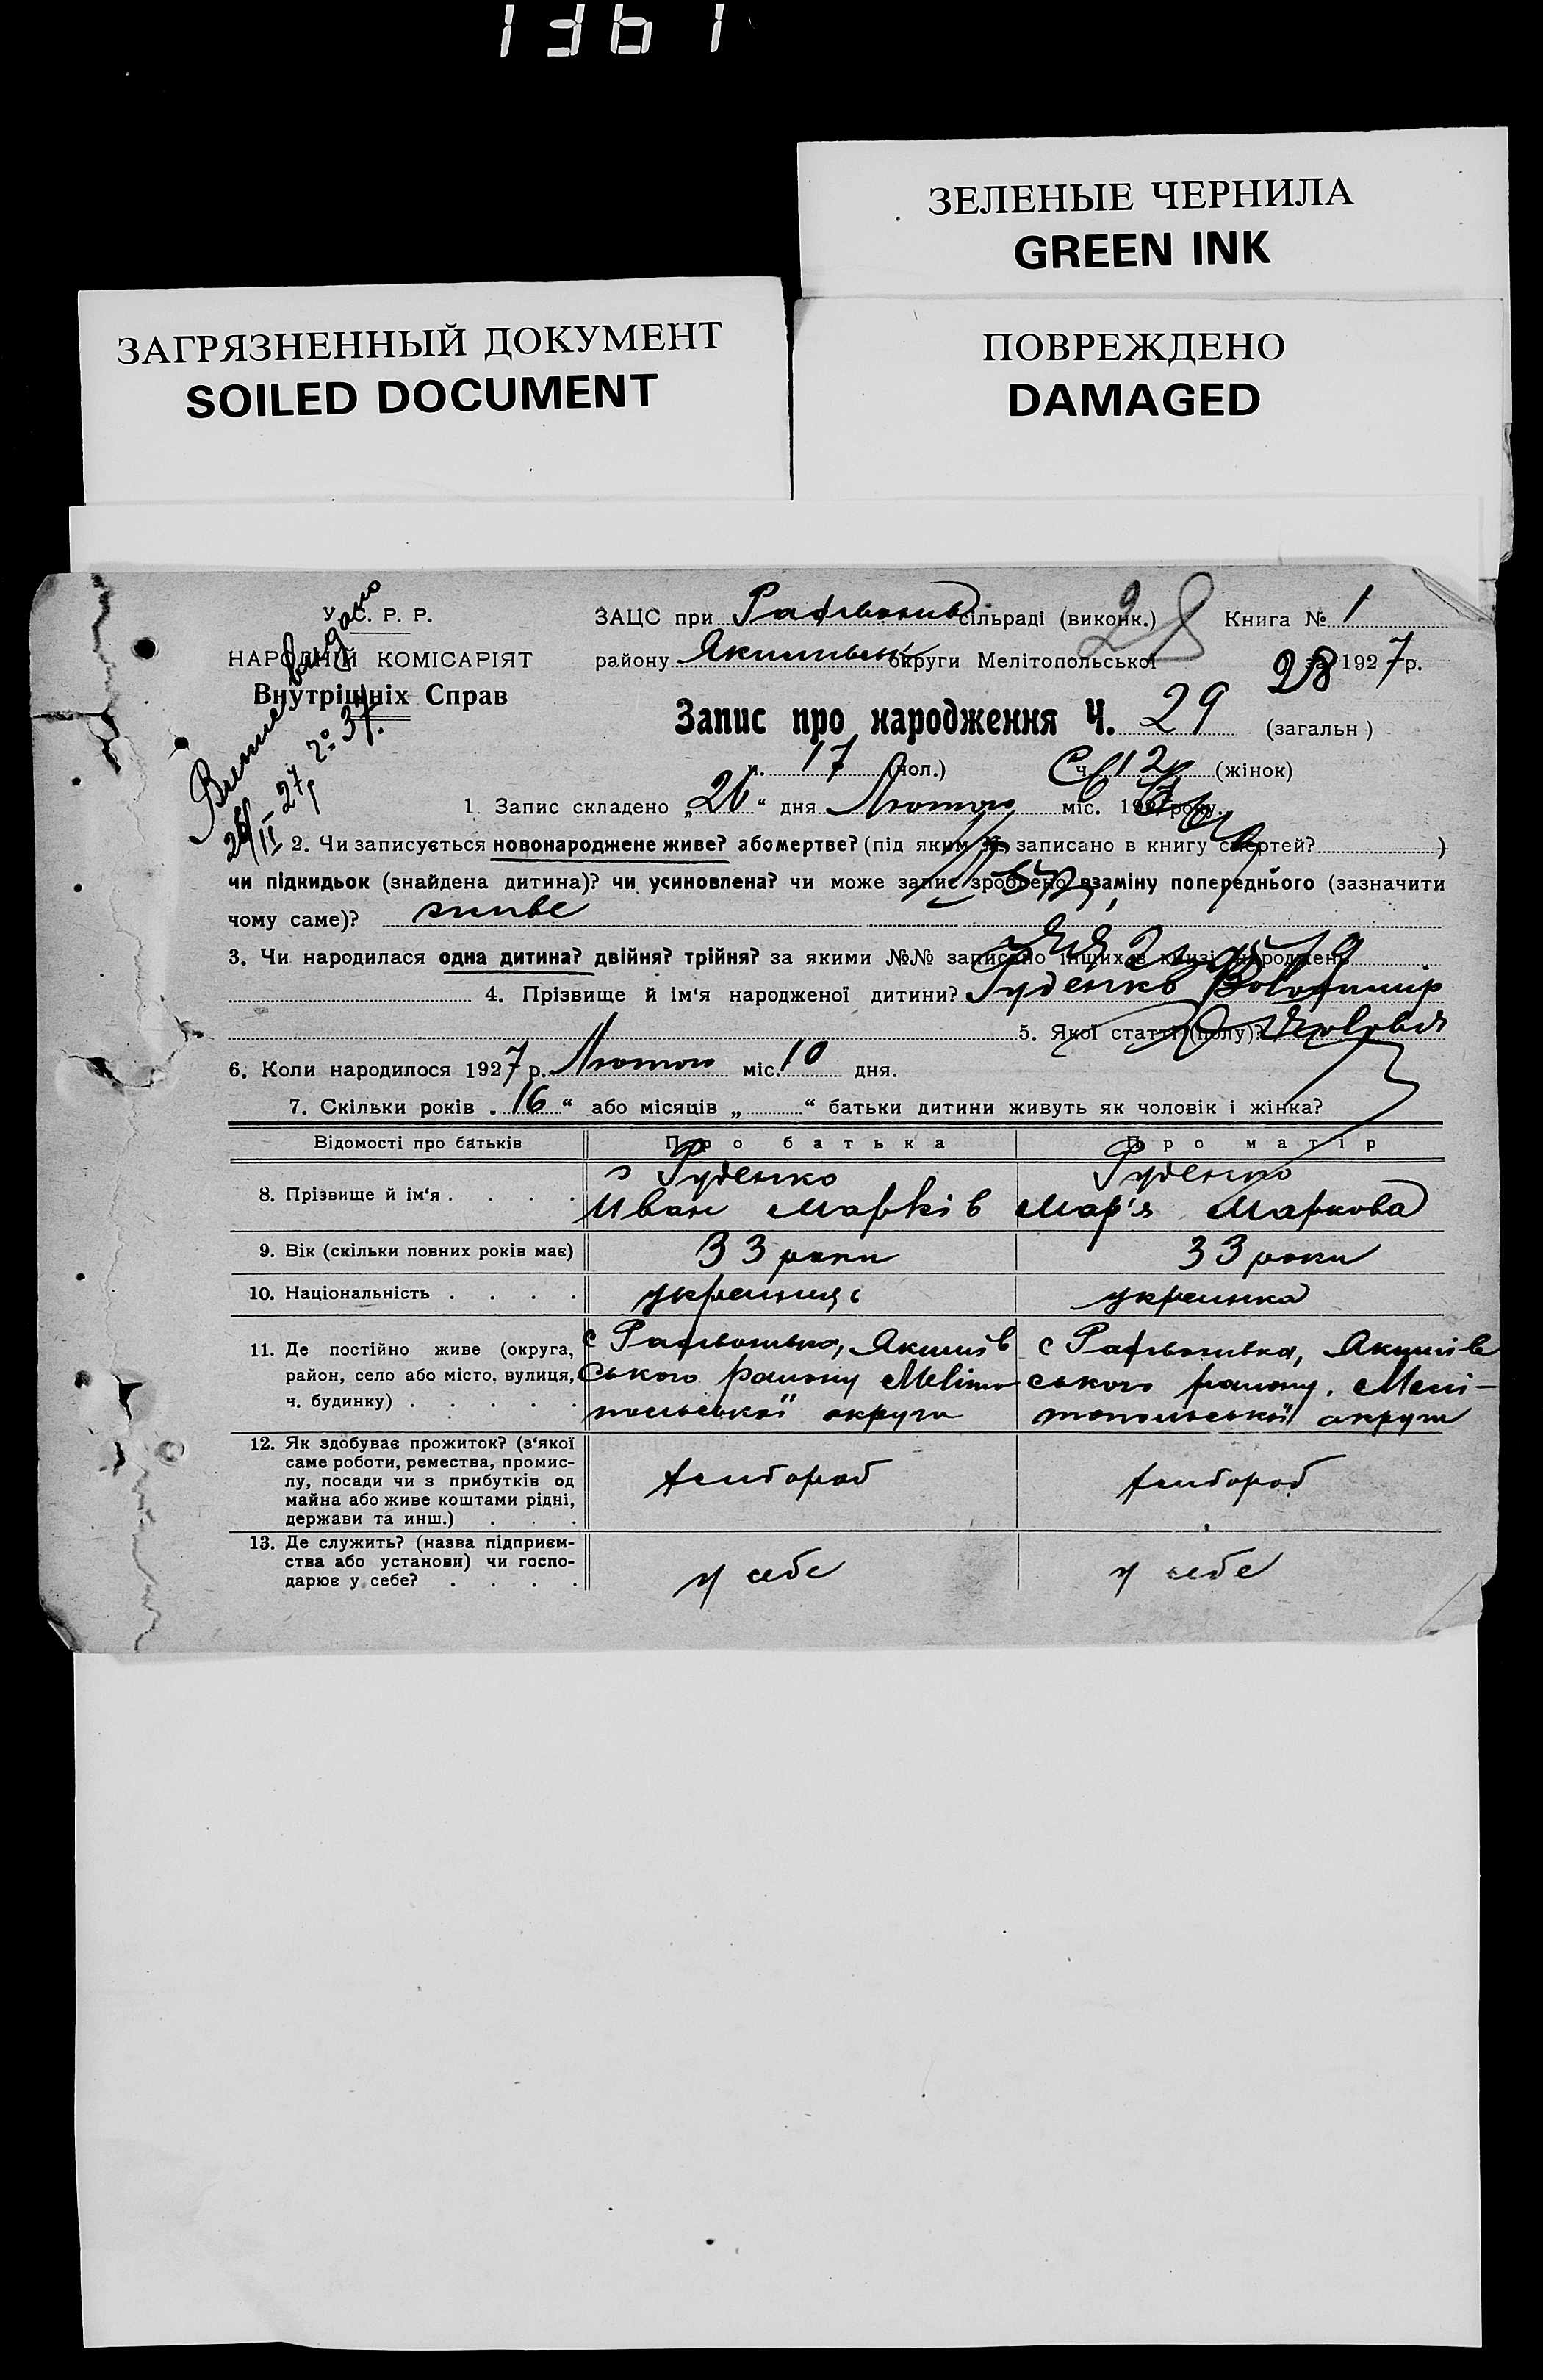 1361
ЗЕЛЕНЫЕ ЧЕРНИЛА
GREEN INK
ЗАГРЯЗНЕННЫЙ ДОКУМЕНТ
SOILED DOCUMENT
ПОВРЕЖДЕНО
DAMAGED
У. С. Р. Р.
НАРОДНІЙ КОМІСАРІЯТ
Внутрішніх Справ
28
ЗАЦС при сільраді (виконк.) Книга № 1
району округи Мелітопольської за 1927 р.
28
Запис про народження Ч. 29 (загальн)
ч. 17 (чол.) ч. 12 (жінок)
1. Запис складено „26“ дня Лютого міс. 1927 року.
2. Чи записується новонароджене живе? або мертве? (під яким № записано в книгу смертей? )
чи підкидьок (знайдена дитина)? чи усиновлена? чи може запис зроблено взаміну попереднього (зазначити
чому саме)? живе
3. Чи народилася одна дитина? двійня? трійня? за якими №№ записано інших в книзі народжень
4. Прізвище й ім‘я народженої дитини? Руденко Володимир
5. Якої статті (полу)? чоловіч
6. Коли народилося 1927 р. Лютого міс. 10 дня.
7. Скільки років „16“ або місяців „ “ батьки дитини живуть як чоловік і жінка?
Відомості про батьків Про батька Про матір
8. Прізвище й ім‘я . . . . Руденко Иван Марків Руденко Мар'я Маркова
9. Вік (скільки повних років має) 33 роки 33 роки
10. Національність . . . . украинць украинка
11. Де постійно живе (округа,
район, село або місто, вулиця,
ч. будинку) . . . . .
с Радивонивка, Якимів
ського району Меліто
польської округи
с Радивонивка, Якимів
ського району, Мелі-
топольської округи
12. Як здобуває прожиток? (з‘якої
саме роботи, ремества, промис-
лу, посади чи з прибутків од
майна або живе коштами рідні,
держави та инш.) . . .
хлибороб хлибороб
13. Де служить? (назва підприєм-
ства або установи) чи госпо-
дарює у себе? . . . .
у себе у себе